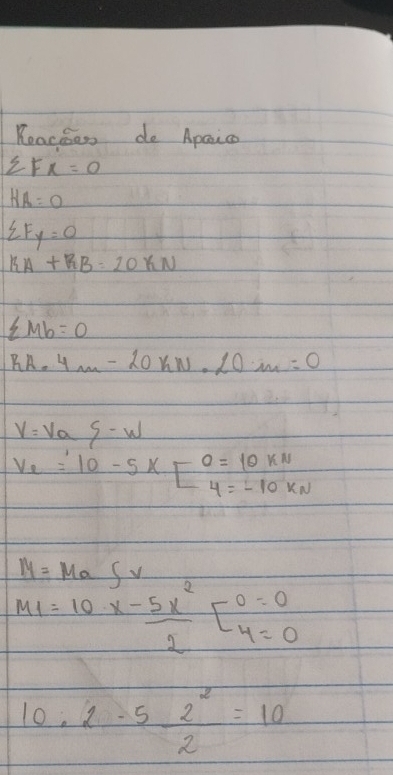 Reações de Apoio
ΣFx = 0
HA = 0
ΣFy = 0
RA + RB = 20 KN
ΣMb = 0
RA . 4m - 20 KN . 20 m = 0
V = Va ∫ - W
V = 10 - 5x [ 0 = 10 KN
4 = -10 KN
M = Ma ∫ v
M1 = 10 x - 5x² / 2 [ 0 = 0
4 = 0
10 . 2 - 5 2² / 2 = 10